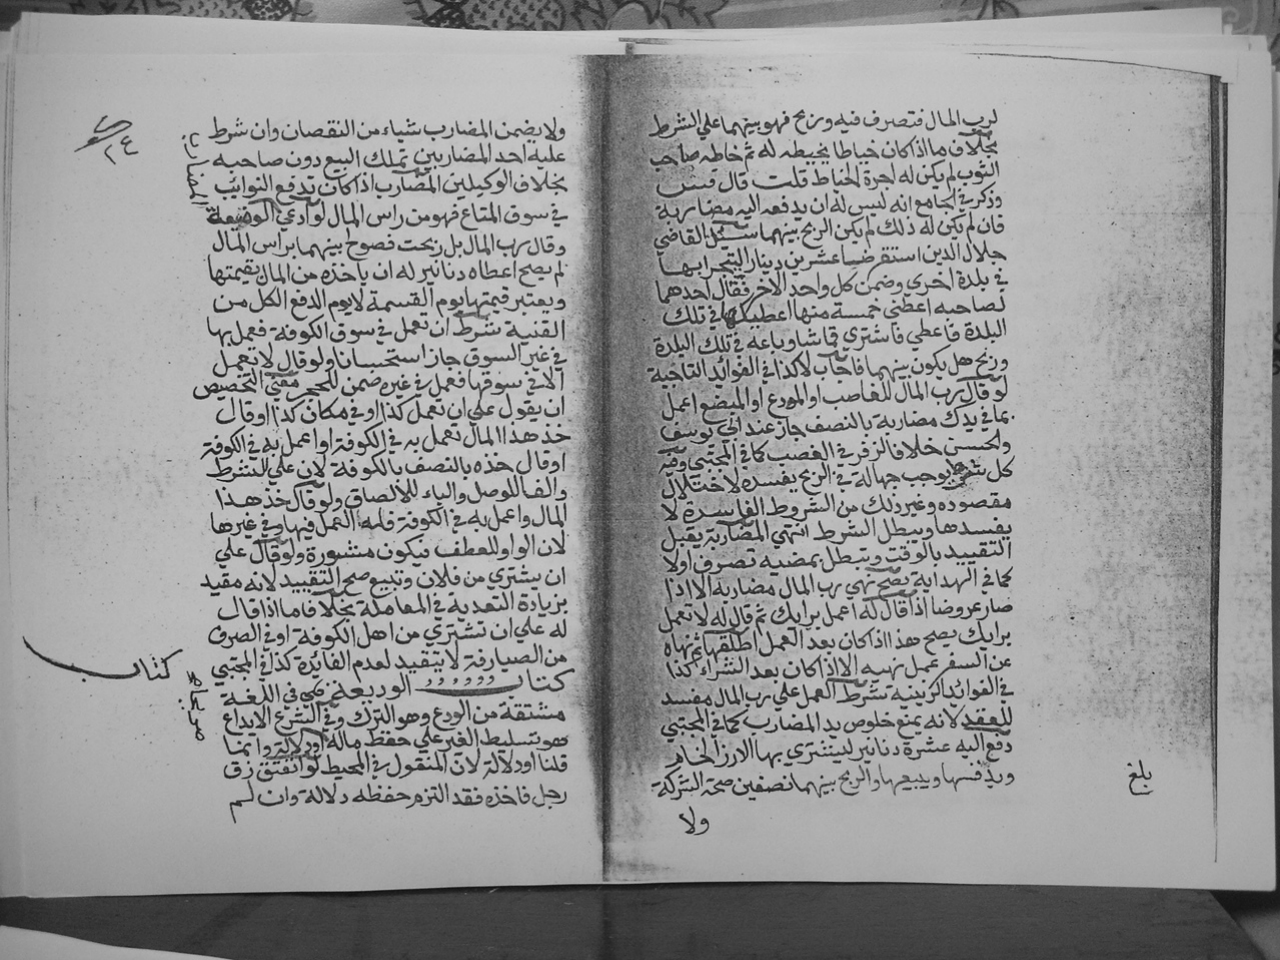 لرب المال فتصرف فيه وربح فهو بينهما علي الشرط
بخلاف ما اذا كان خياطا يخيطه له ثم خاطه صاحب
الثوب لم يكن له اجرة الخياط قلت قال
وذكر في الجامع انه ليس له ان يدفعه اليه مضاربة
فان لم يكن له ذلك لم يكن الربح بينهما سئل القاضي
جلال الدين استقرضا عشرين دينار ليتجرا بها
في بلدة اخري وضمن كل واحد الاخر فقال احدهما
لصاحبه اعطني خمسة منها اعطيكها في تلك
البلدة فاعطي فاشتري قماشا وباعه في تلك البلدة
وربح هل يكون بينهما فاجاب لا كذا في الفوائد التاجية
لو قال رب المال للغاصب او المودع او المبضع اعمل
بما في يدك مضاربة بالنصف جاز عند ابي يوسف
والحسن خلافا لزفر في الغصب كما في المجتبي وفيه
كل شرط يوجب جهالة في الربح يفسده لاختلال
مقصوده وغير ذلك من الشروط الفاسدة لا
يفسدها ويبطل الشرط انتهي المضاربة يقبل
التقييد بالوقت وتبطل بمضيه تصرف اولا
كما في الهداية يصح نهي رب المال مضاربه الا اذا
صار عروضا اذا قال له اعمل برايك ثم قال له لا تعمل
برايك يصح هذا اذا كان بعد العمل اطلقها ثم نهاه
عن السفر عمل نهيه الا اذا كان بعد الشراء كذا
في الفوائد الزينية شرط العمل علي رب المال مفسد
للعقد لانه يمنع خلوص يد المضارب كما في المجتبي
دفع اليه عشرة دنانير ليشتري بها الارز الخام
ويبيعها والربح بينهما نصفين صحة الشركة
ولا
بلغ
ولا يضمن المضارب شياء من النقصان وان شرط
عليه احد المضاربين تملك البيع دون صاحبه
بخلاف الوكيلين المضارب اذا كان يدفع النوايب
في سوق المتاع فهو من راس المال لو ادعي الوضيعة
وقال رب المال بل ربحت فصولح بينهما براس المال
لم يصح اعطاه دنانير له ان ياخذه من المال بقيمتها
ويعتبر قيمتها يوم القسمة لا يوم الدفع الكل من
القنية شرط ان تعمل في سوق الكوفة فعمل بها
في غير السوق جاز استحسانا ولو قال لا تعمل
الا في سوقها فعمل في غيره ضمن للحجر معني التخصيص
ان يقول علي ان تعمل كذا او في مكان كذا او قال
خذ هذا المال تعمل به في الكوفة او اعمل به في الكوفة
او قال خذه بالنصف بالكوفة لان علي للشرط
والفا للوصل والباء للالصاق ولو قال خذ هذا
المال واعمل به في الكوفة فله العمل فيها وفي غيرها
لان الواو للعطف فيكون مشورة ولو قال علي
ان يشتري من فلان وتبيع صح التقييد لانه مقيد
بزيادة التعدية في المعاملة بخلاف ما اذا قال
له علي ان تشتري من اهل الكوفة او في الصرف
من الصيارفة لا يتقيد لعدم الفائدة كذا في المجتبي
كتاب الوديعة هي في اللغة
مشتقة من الودع وهو الترك وفي الشرع الايداع
هو تسليط الغير علي حفظ ماله او دلالة وانما
قلنا او دلالة لان المنقول في المحيط لو انفتق زق
رجل فاخذه فقد التزم حفظه دلالة وان لم
كتاب